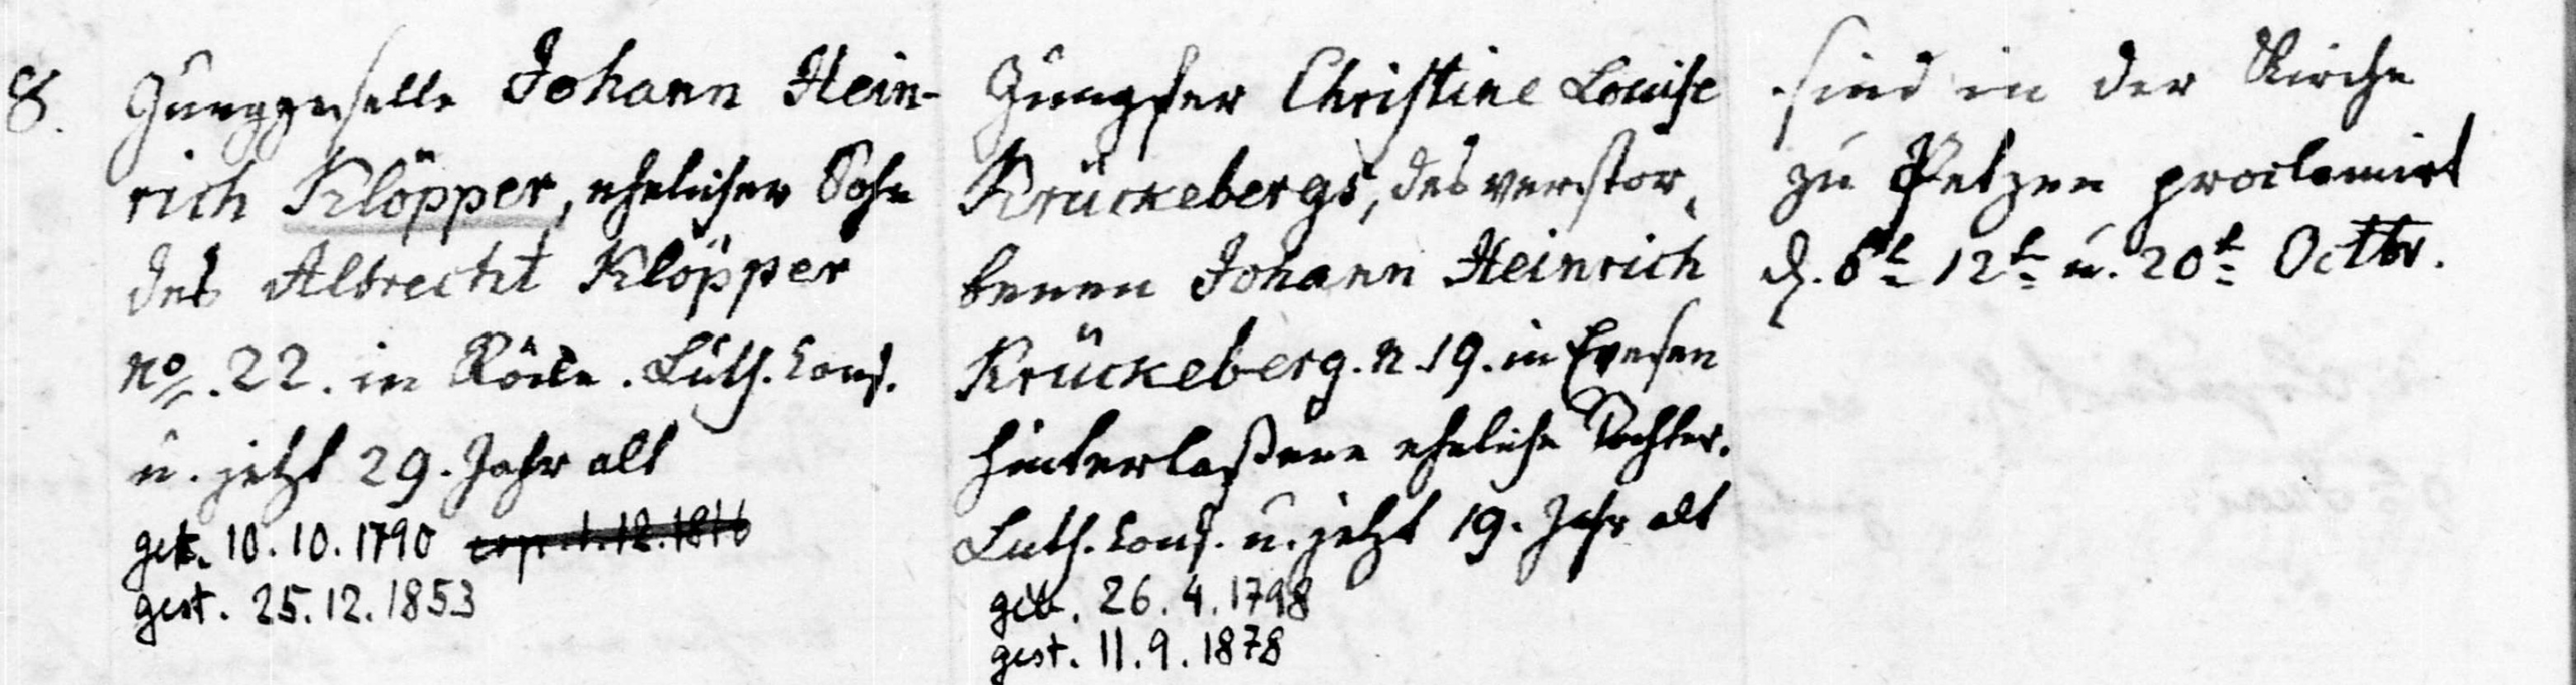 8.
Junggeselle Johann Hein-
rich Klöpper, ehelicher Sohn
des Albrecht Klöpper
No. 22. in Röcke. Luth. Conf.
u. jetzt 29. Jahr alt
geb. 10.10.1790 cop. 1.12.1816
gest. 25.12.1853
Jungfer Christine Louise
Krückebergs, des verstor,
benen Johann Heinrich
Krückeberg. N. 19. in Evesen
hinterlaßene eheliche Tochter.
Luth. Conf. u. jetzt 19. Jahr alt
geb. 26.4.1798
gest. 11.9.1878
sind in der Kirche
zu Petzen proclamirt
d. 6t 12t u. 20t Octbr.